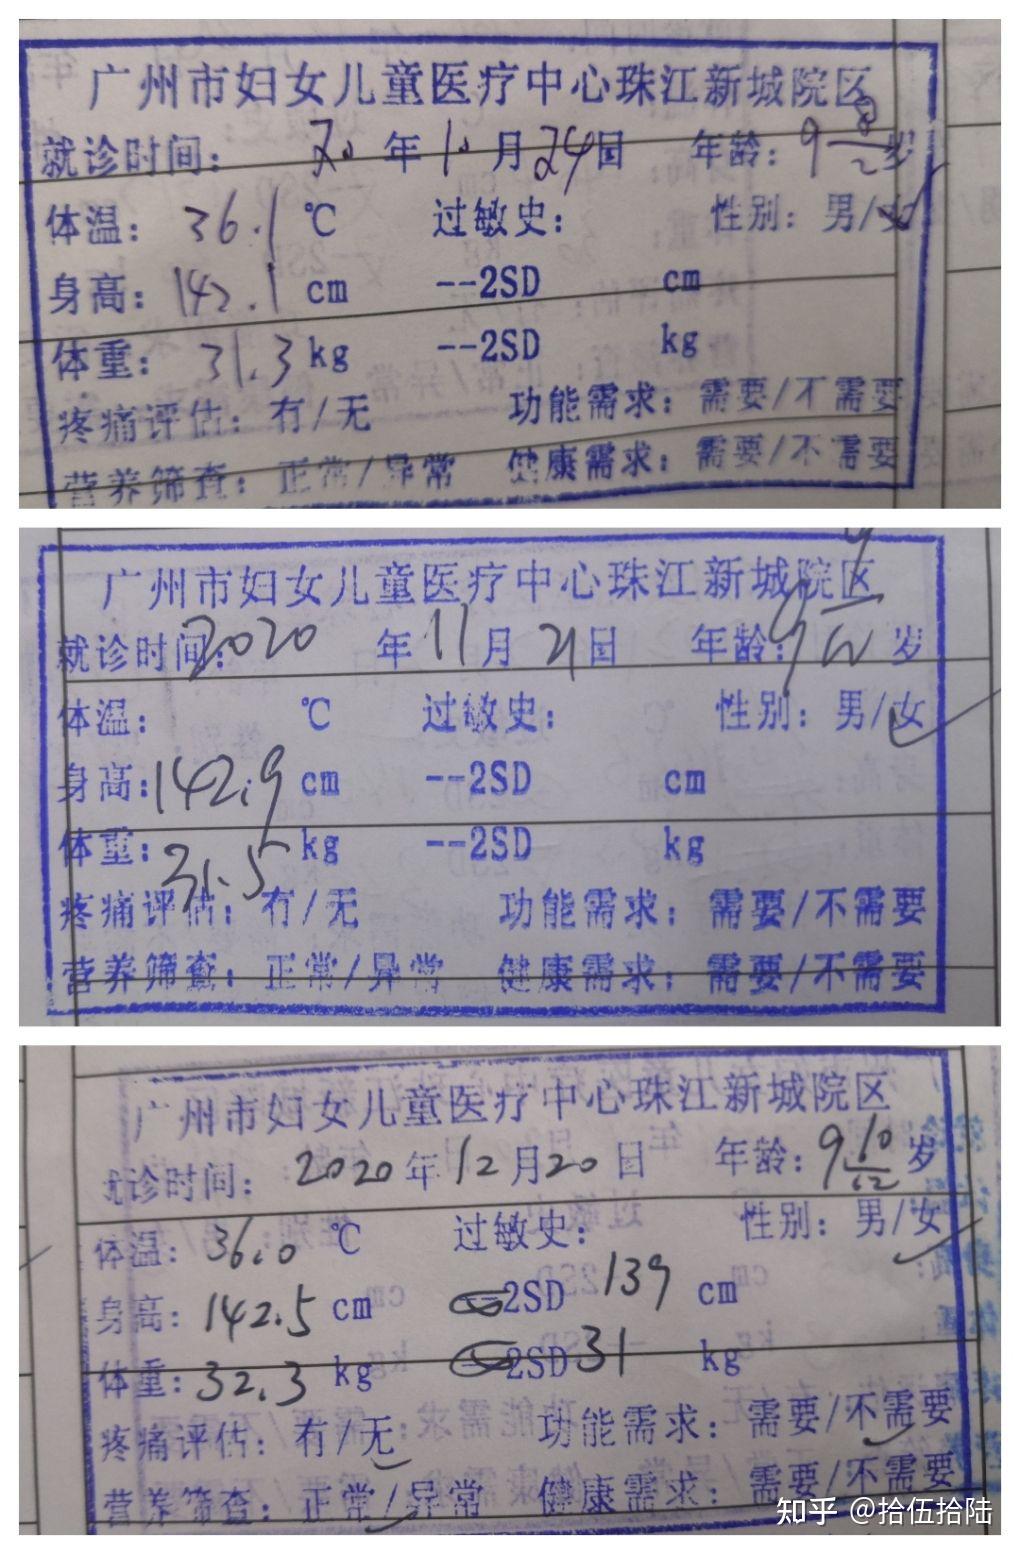 广州市妇女儿童医疗中心珠江新城院区
就诊时间: 20 年 10 月 24 日 年龄: 9 8/12 岁
体温: 36.1 ℃ 过敏史: 性别: 男/女
身高: 142.1 cm --2SD cm
体重: 31.3 kg --2SD kg
疼痛评估: 有/无 功能需求: 需要/不需要
营养筛查: 正常/异常 健康需求: 需要/不需要
广州市妇女儿童医疗中心珠江新城院区
就诊时间: 2020 年 11 月 21 日 年龄: 9 9/12 岁
体温: ℃ 过敏史: 性别: 男/女
身高: 142.9 cm --2SD cm
体重: 31.5 kg --2SD kg
疼痛评估: 有/无 功能需求: 需要/不需要
营养筛查: 正常/异常 健康需求: 需要/不需要
广州市妇女儿童医疗中心珠江新城院区
就诊时间: 2020 年 12 月 20 日 年龄: 9 10/12 岁
体温: 36.0 ℃ 过敏史: 性别: 男/女
身高: 142.5 cm 2SD 139 cm
体重: 32.3 kg 2SD 31 kg
疼痛评估: 有/无 功能需求: 需要/不需要
营养筛查: 正常/异常 健康需求: 需要/不需要
知乎 @拾伍拾陆